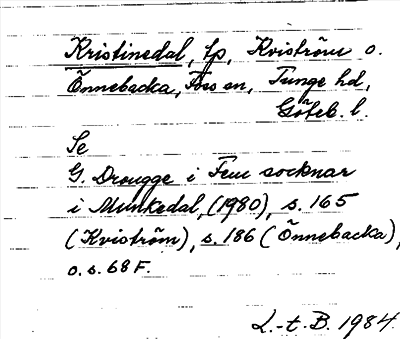 Kristinedal, lp, Kviström o.
Önnebacka, Foss sn, Tunge hd,
Göteb. l.
Se
G. Drougge i Fem socknar
i Munkedal, (1980), s. 165
(Kviström), s. 186 (Önnebacka),
o. s. 68 F.
L.-t. B. 1984.